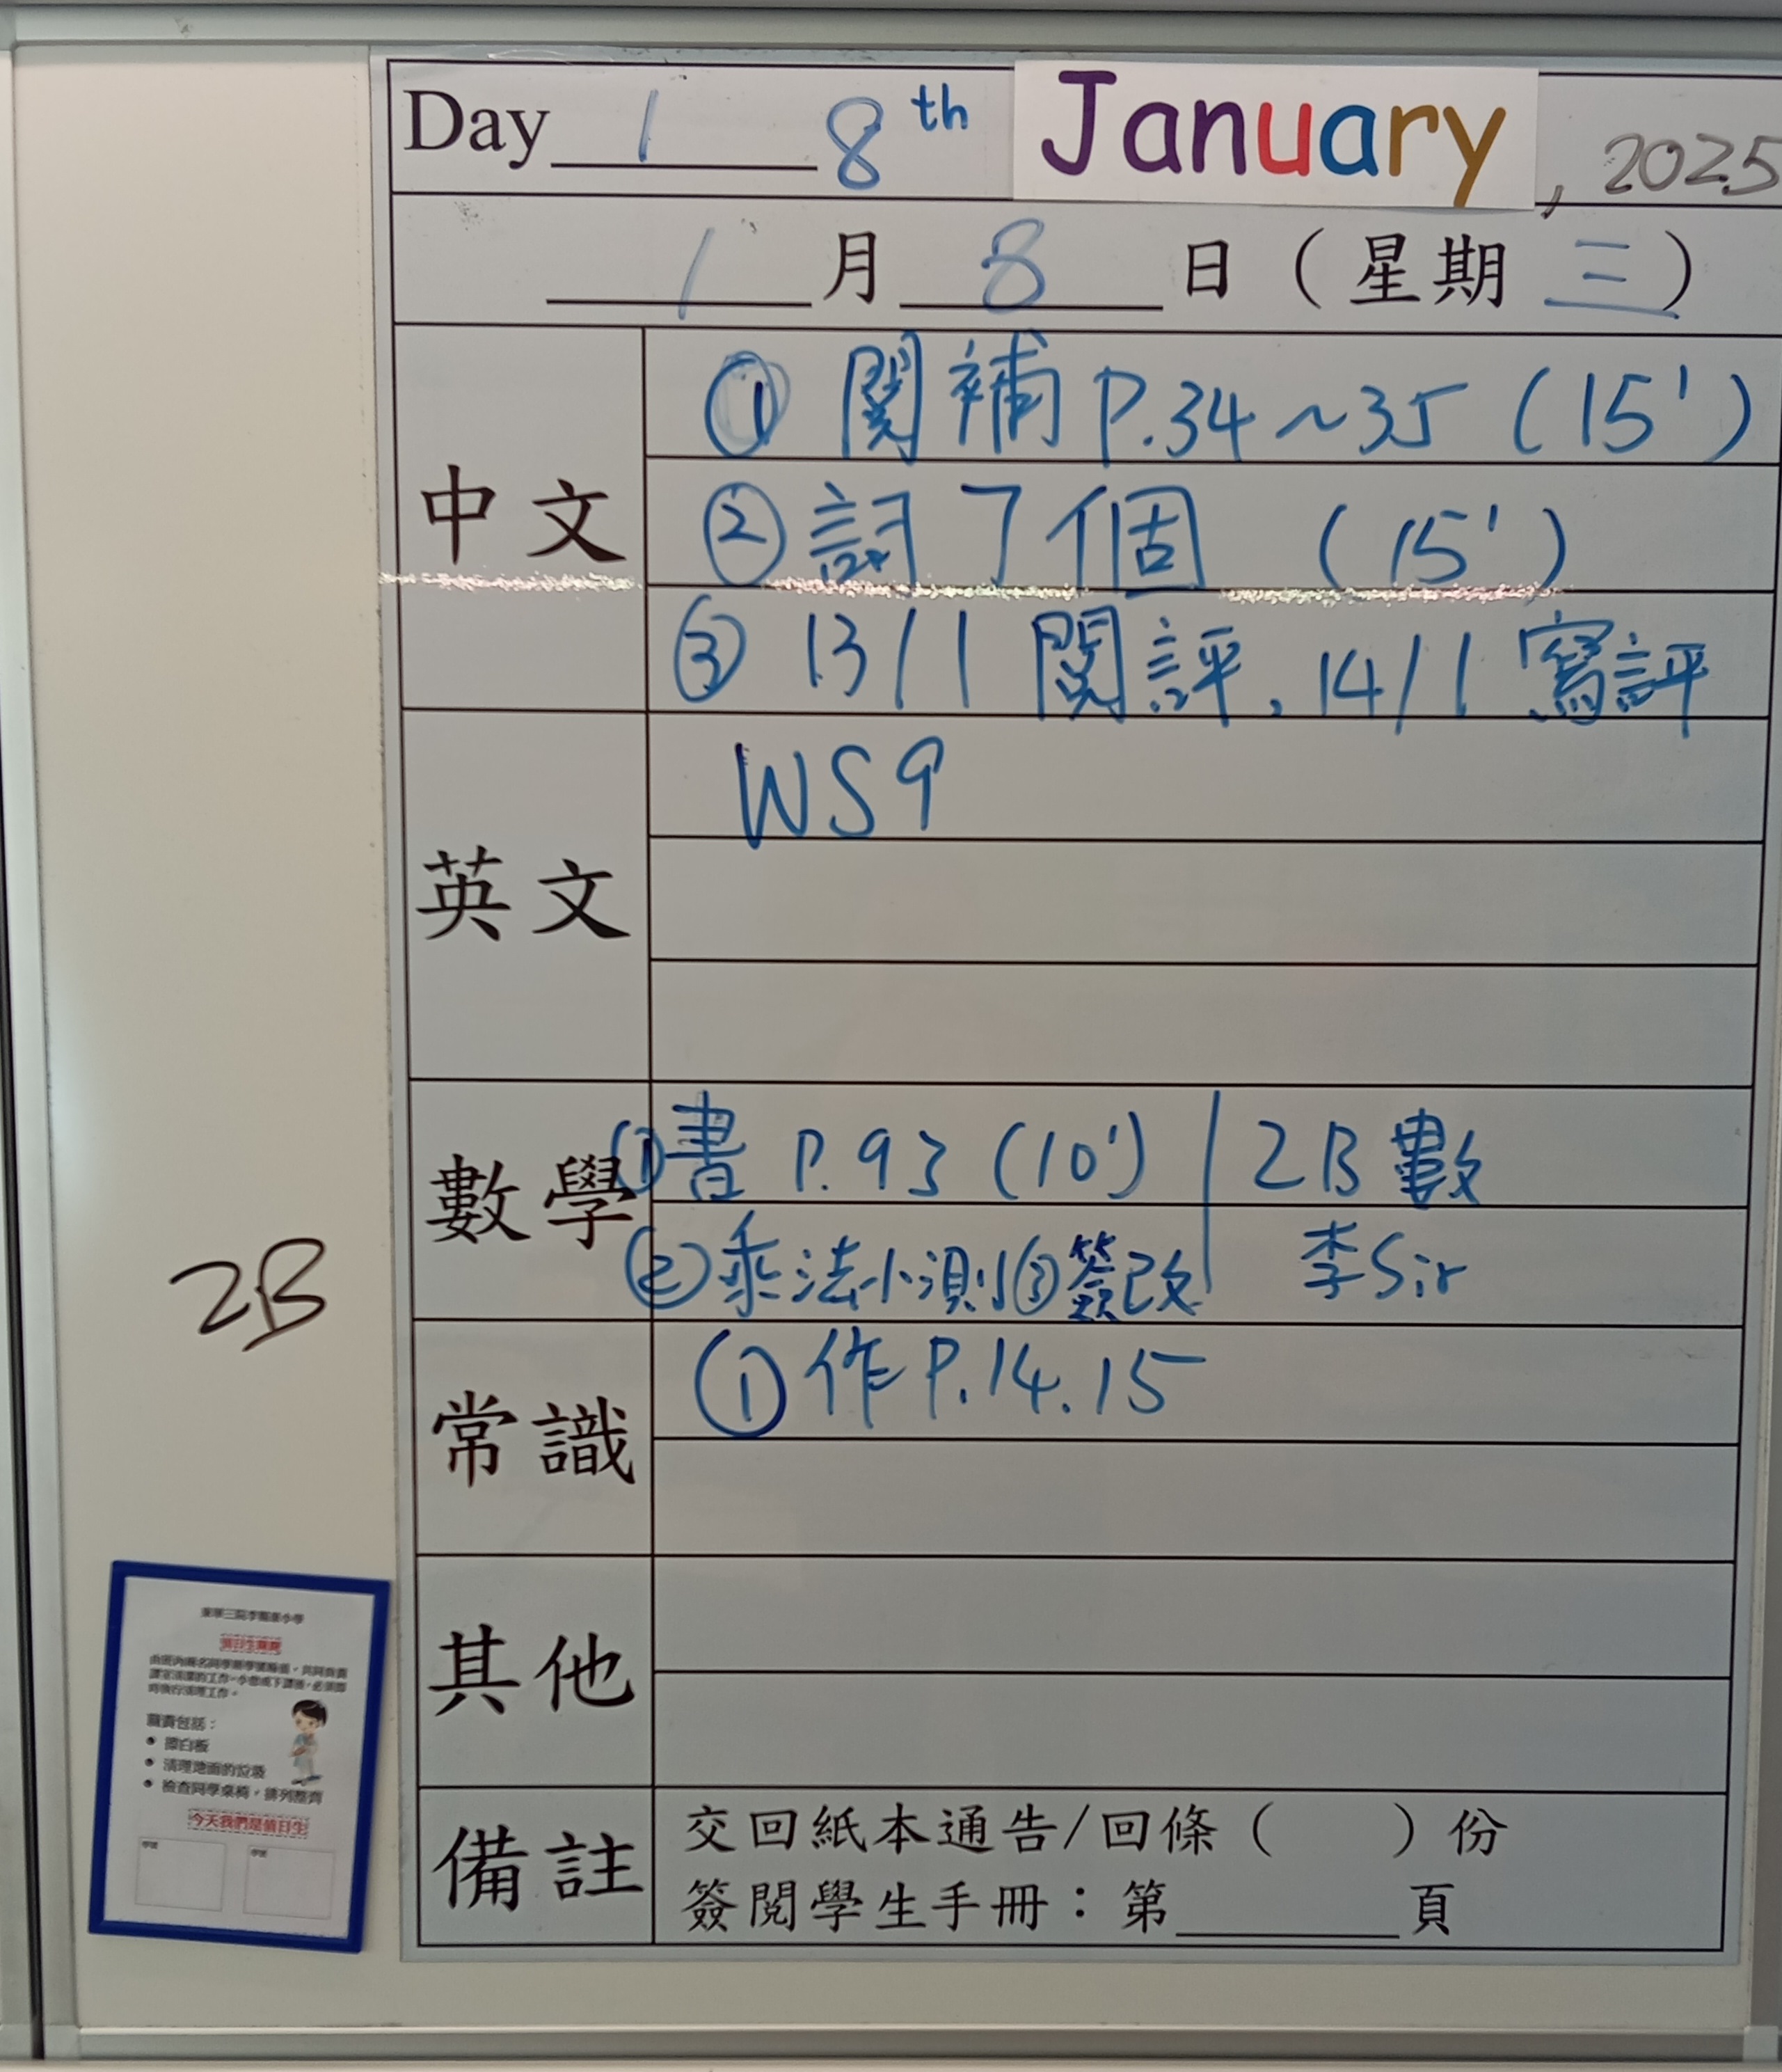 Day 1 8th January, 2025
1月8日(星期三)
中文
① 閱補 P.34~35 (15')
② 詞7個 (15')
③ 13/1 閱評, 14/1 寫評
英文
WS9
數學
① 書 P.93 (10') | 2B 數
② 乘法小測 ③簽改 李Sir
2B
常識
① 作 P.14.15
其他
備註
交回紙本通告/回條( )份
簽閱學生手冊:第____頁
職責包括:
• 擦白板
• 清理地面的垃圾
• 檢查同學桌椅,排列整齊
今天我們是值日生
學號 學號